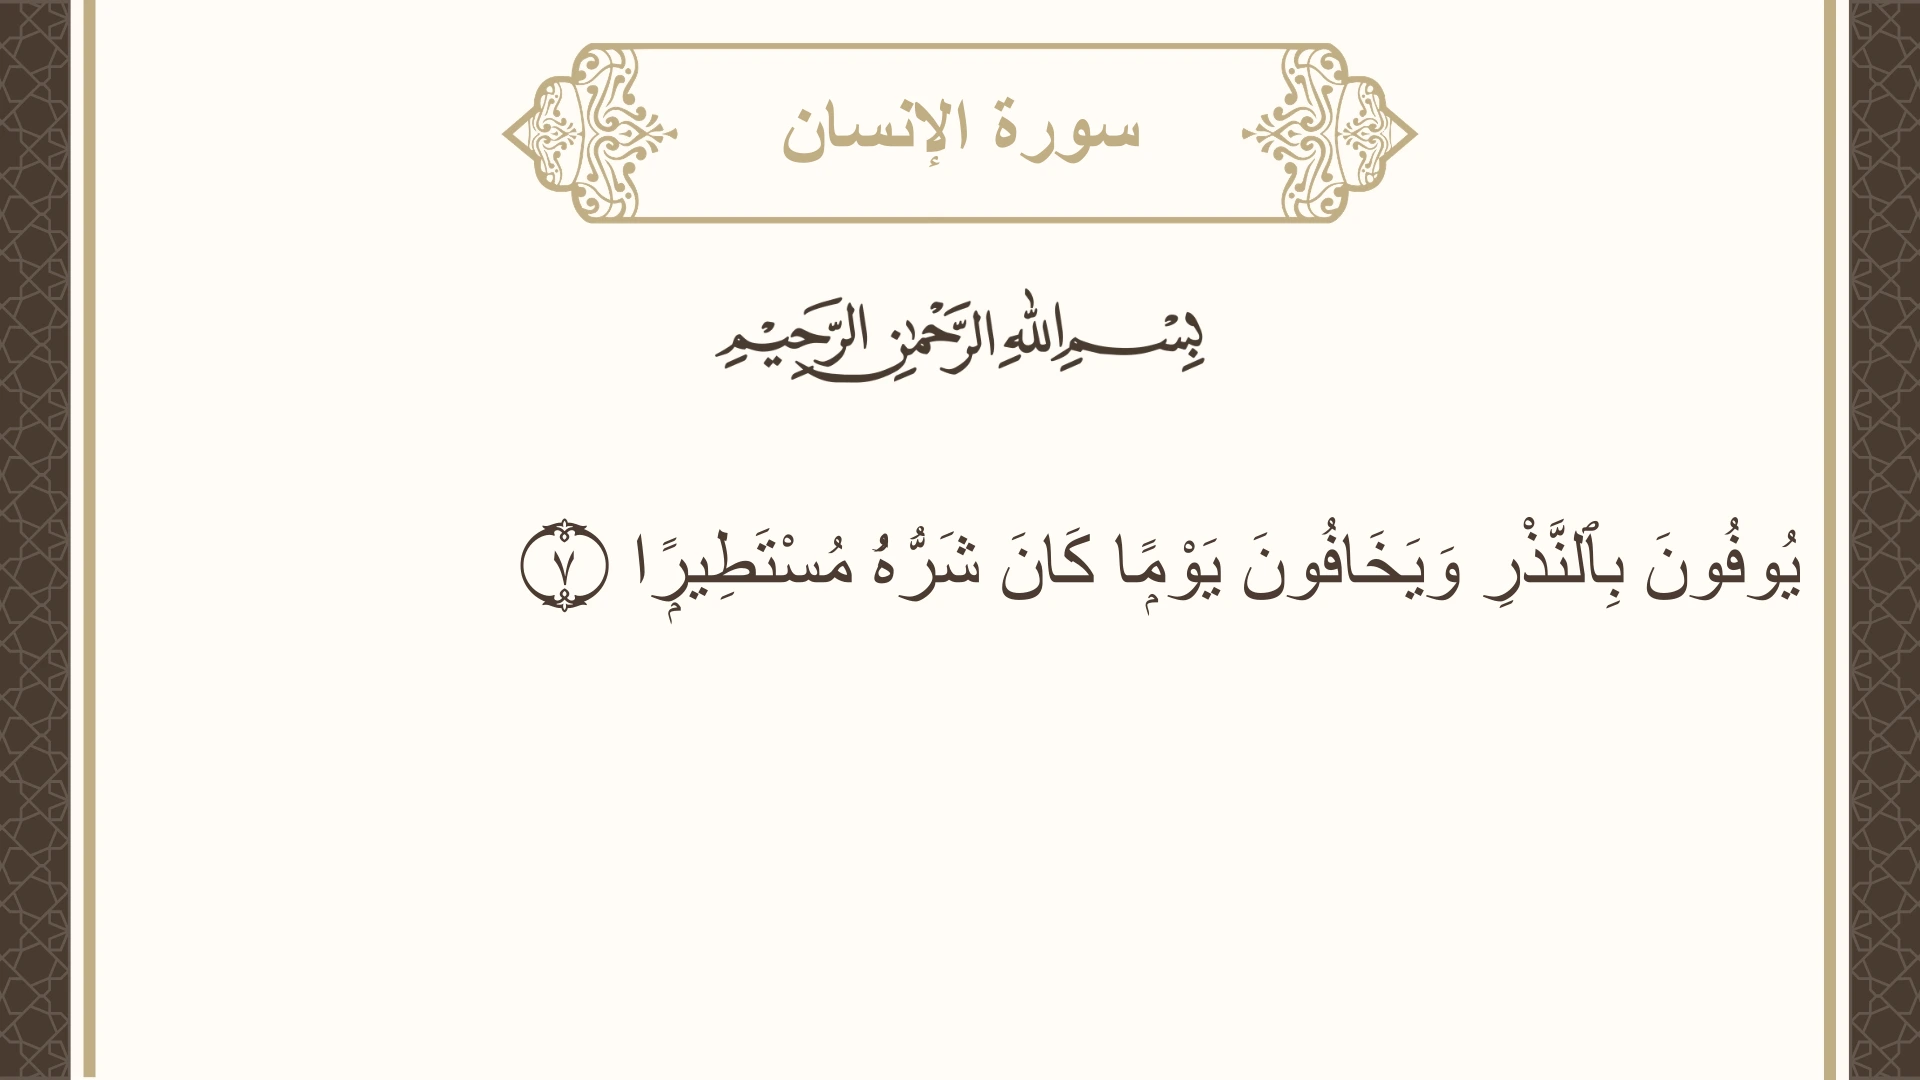 سورة الإنسان
بِسْمِ اللهِ الرَّحْمٰنِ الرَّحِيْمِ
يُوفُونَ بِٱلنَّذْرِ وَيَخَافُونَ يَوْمًۭا كَانَ شَرُّهُۥ مُسْتَطِيرًۭا ٧